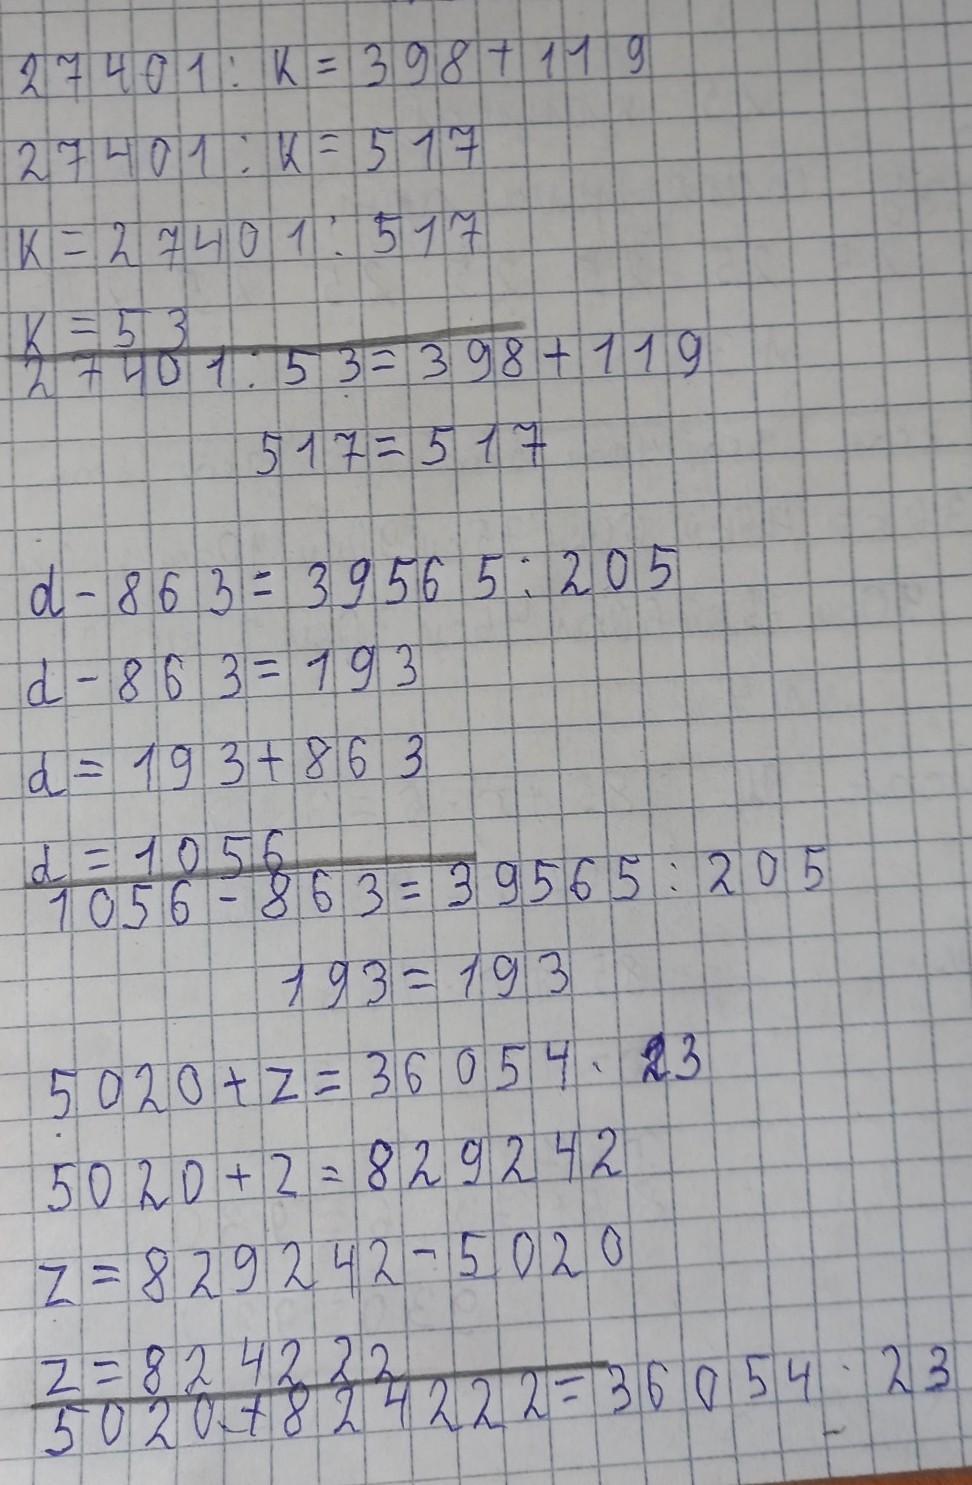 27401 : k = 398 + 119
27401 : k = 517
k = 27401 : 517
k = 53
27401 : 53 = 398 + 119
517 = 517
d - 863 = 39565 : 205
d - 863 = 193
d = 193 + 863
d = 1056
1056 - 863 = 39565 : 205
193 = 193
5020 + z = 36054 · 23
5020 + z = 829242
z = 829242 - 5020
z = 824222
5020 + 824222 = 36054 · 23